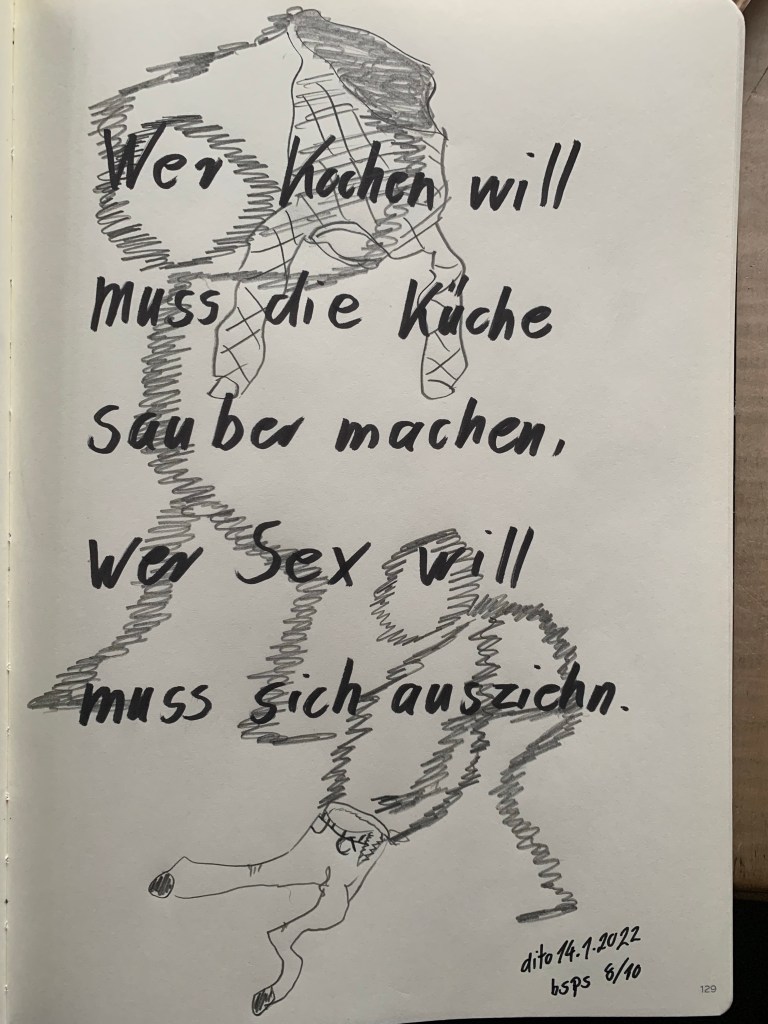 Wer Kochen will
muss die Küche
sauber machen,
wer Sex will
muss sich ausziehn.
dito 14.1.2022
bsps 8/10
129